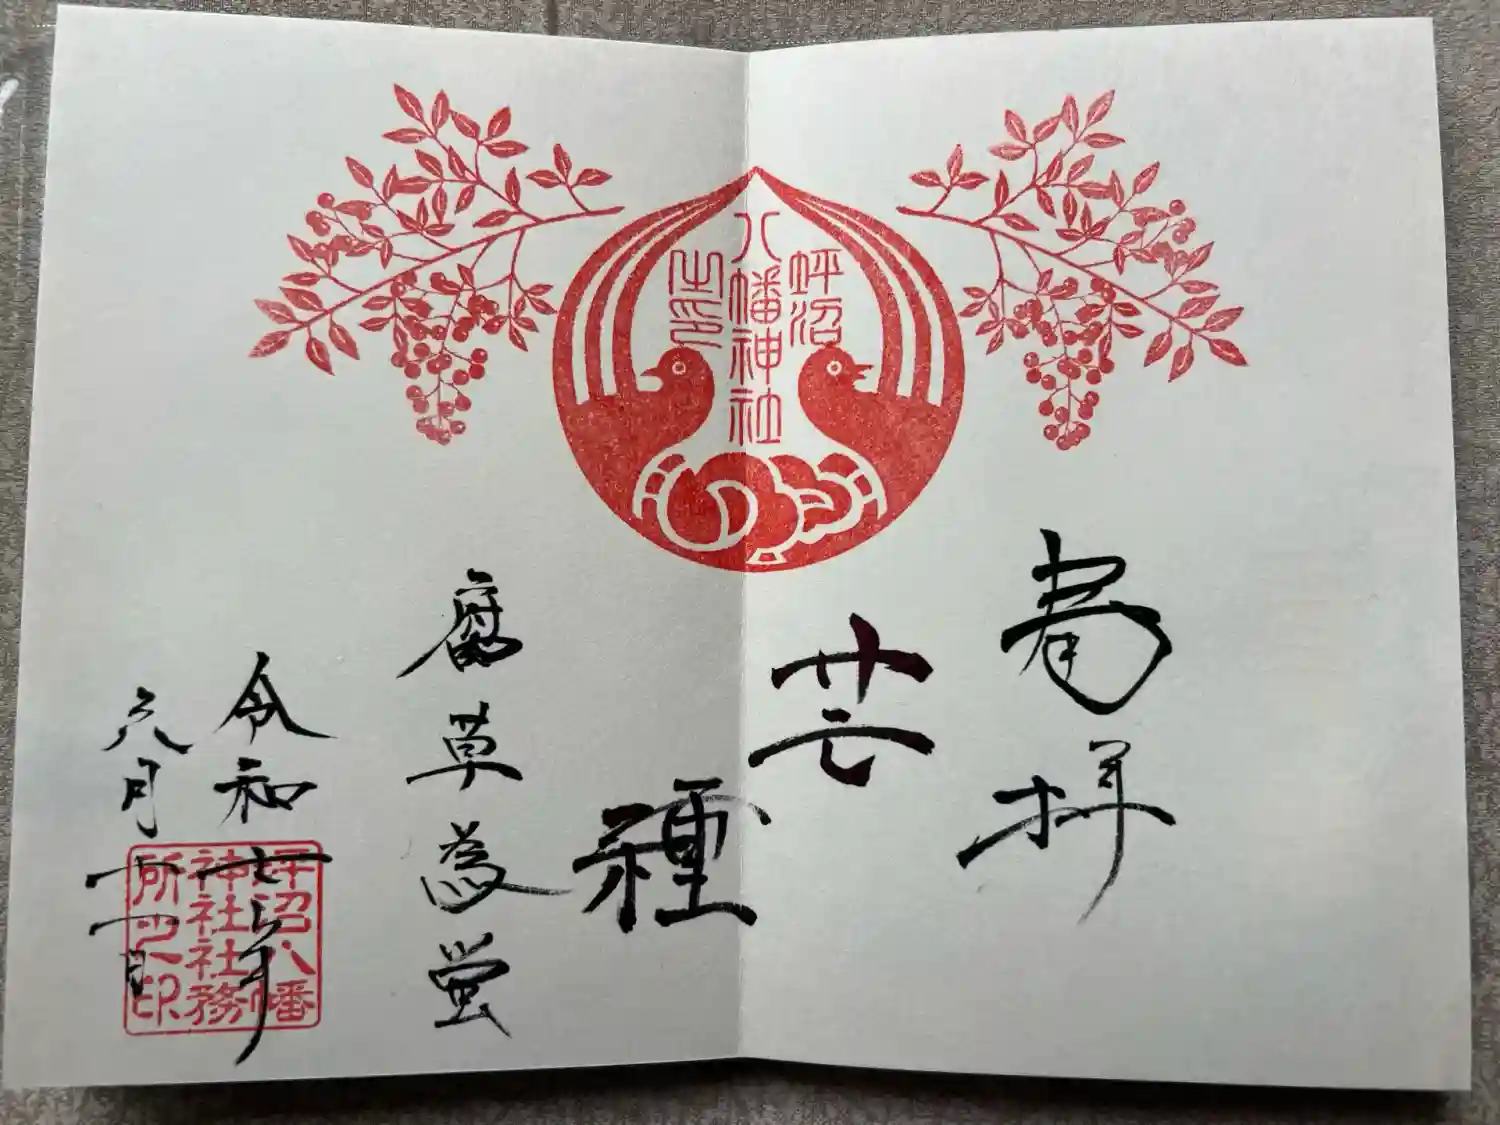 奉拝
坪沼
八幡神社
之印
芒種
腐草為蛍
令和七年
六月十一日
坪沼八幡
神社社務
所之印